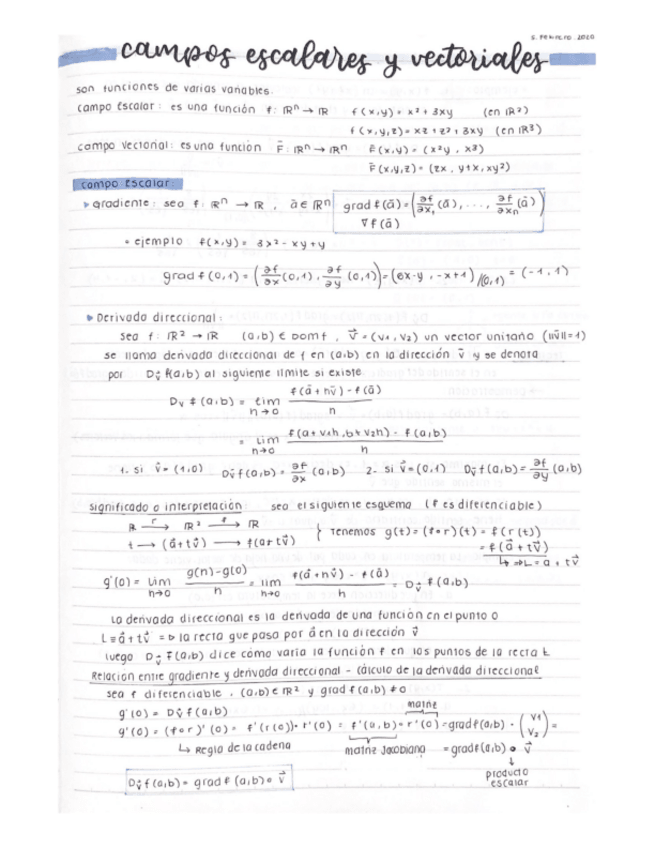 5. Febrero. 2020
campos escalares y vectoriales
son funciones de varias variables.
campo Escalar: es una función f: ℝⁿ → ℝ f(x,y) = x² + 3xy (en ℝ²)
f(x,y,z) = xz + z² + 3xy (en ℝ³)
campo Vectorial: es una función F̄: ℝⁿ → ℝⁿ F̄(x,y) = (x²y, x³)
F̄(x,y,z) = (zx, y+x, xy²)
campo Escalar:
▸ gradiente: sea f: ℝⁿ → ℝ, ā ∈ ℝⁿ grad f(ā) = (∂f/∂x₁ (ā), ..., ∂f/∂xn (ā))
∇f(ā)
= ejemplo f(x,y) = 3x² - xy + y
grad f(0,1) = (∂f/∂x (0,1), ∂f/∂y (0,1)) = (6x-y, -x+1) /(0,1) = (-1, 1)
▸ Derivada direccional:
sea f: ℝ² → ℝ (a,b) ∈ Domf, V⃗ = (v₁, v₂) un vector unitario (||v̄||=1)
se llama derivada direccional de f en (a,b) en la dirección v̄ y se denota
por Dv̄ f(a,b) al siguiente límite si existe
Dv⃗ f(a,b) = lim h→0 f(ā + hv̄) - f(ā) / h
= lim h→0 f(a+v₁h, b+v₂h) - f(a,b) / h
1- si v̄ = (1,0) Dv̄ f(a,b) = ∂f/∂x (a,b) 2- si v⃗ = (0,1) Dv̄ f(a,b) = ∂f/∂y (a,b)
significado o interpretación sea el siguiente esquema (f es diferenciable)
ℝ r→ ℝ² f→ ℝ } Tenemos g(t) = (f∘r)(t) = f(r(t))
t → (a⃗ + tv⃗) → f(a+tv⃗) = f(a⃗ + tv⃗)
↳ ⇒ L = a + tv⃗
g'(0) = lim h→0 g(h) - g(0) / h = lim h→0 f(a⃗ + hv⃗) - f(a⃗) / h = Dv⃗ f(a,b)
La derivada direccional es la derivada de una función en el punto 0
L ≡ a⃗ + tv⃗ ⇒ la recta que pasa por a⃗ en la dirección v⃗
luego Dv⃗ f(a,b) dice cómo varía la función f en los puntos de la recta L
Relación entre gradiente y derivada direccional - cálculo de la derivada direccional
sea f diferenciable, (a,b) ∈ ℝ² y grad f(a,b) ≠ 0
g'(0) = Dv⃗ f(a,b) matriz
g'(0) = (f∘r)'(0) = f'(r(0)) · r'(0) = f'(a,b) · r'(0) = grad f(a,b) · (v1 v2) =
↳ Regla de la cadena matriz Jacobiana = grad f(a,b) • v⃗
↓
producto
escalar
Dv⃗ f(a,b) = grad f(a,b) • v⃗